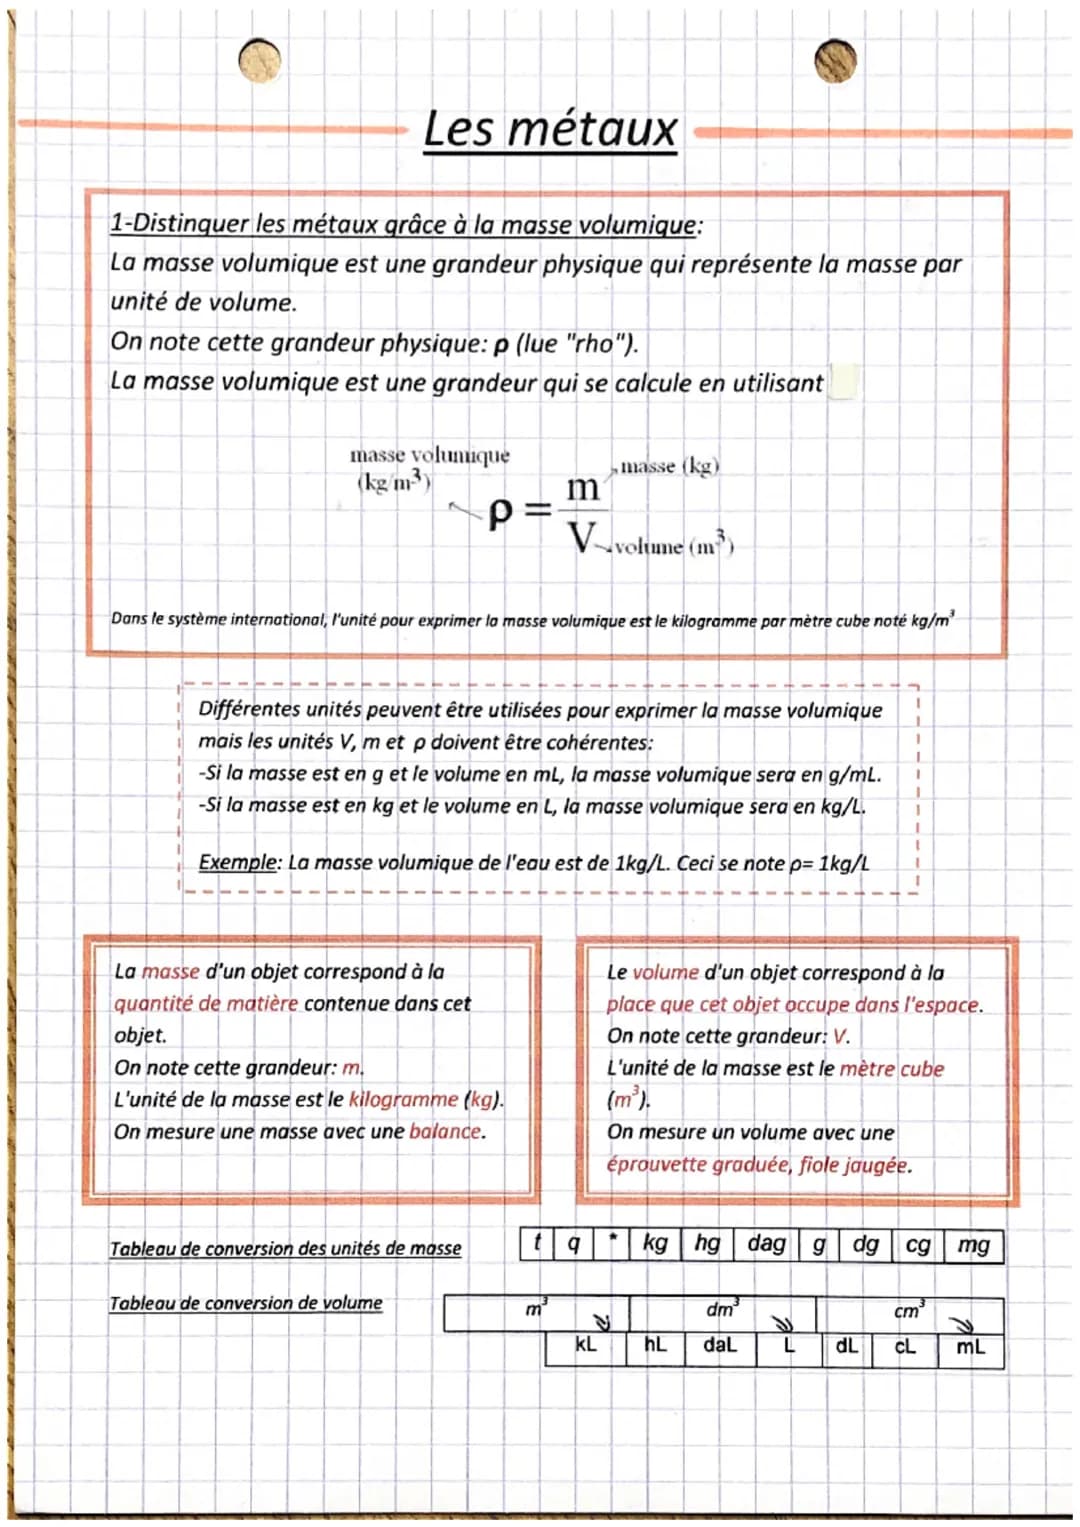 Les métaux
1-Distinguer les métaux grâce à la masse volumique:
La masse volumique est une grandeur physique qui représente la masse par
unité de volume.
On note cette grandeur physique: ρ (lue "rho").
La masse volumique est une grandeur qui se calcule en utilisant
masse volumique
(kg/m³)
masse (kg)
ρ = m/V
volume (m³)
Dans le système international, l'unité pour exprimer la masse volumique est le kilogramme par mètre cube noté kg/m³
Différentes unités peuvent être utilisées pour exprimer la masse volumique
mais les unités V, m et ρ doivent être cohérentes:
-Si la masse est en g et le volume en mL, la masse volumique sera en g/mL.
-Si la masse est en kg et le volume en L, la masse volumique sera en kg/L.
Exemple: La masse volumique de l'eau est de 1kg/L. Ceci se note ρ= 1kg/L
La masse d'un objet correspond à la
quantité de matière contenue dans cet
objet.
On note cette grandeur: m.
L'unité de la masse est le kilogramme (kg).
On mesure une masse avec une balance.
Le volume d'un objet correspond à la
place que cet objet occupe dans l'espace.
On note cette grandeur: V.
L'unité de la masse est le mètre cube
(m³).
On mesure un volume avec une
éprouvette graduée, fiole jaugée.
Tableau de conversion des unités de masse
t q * kg hg dag g dg cg mg
Tableau de conversion de volume
m³ dm³ cm³
kL hL daL L dL cL mL